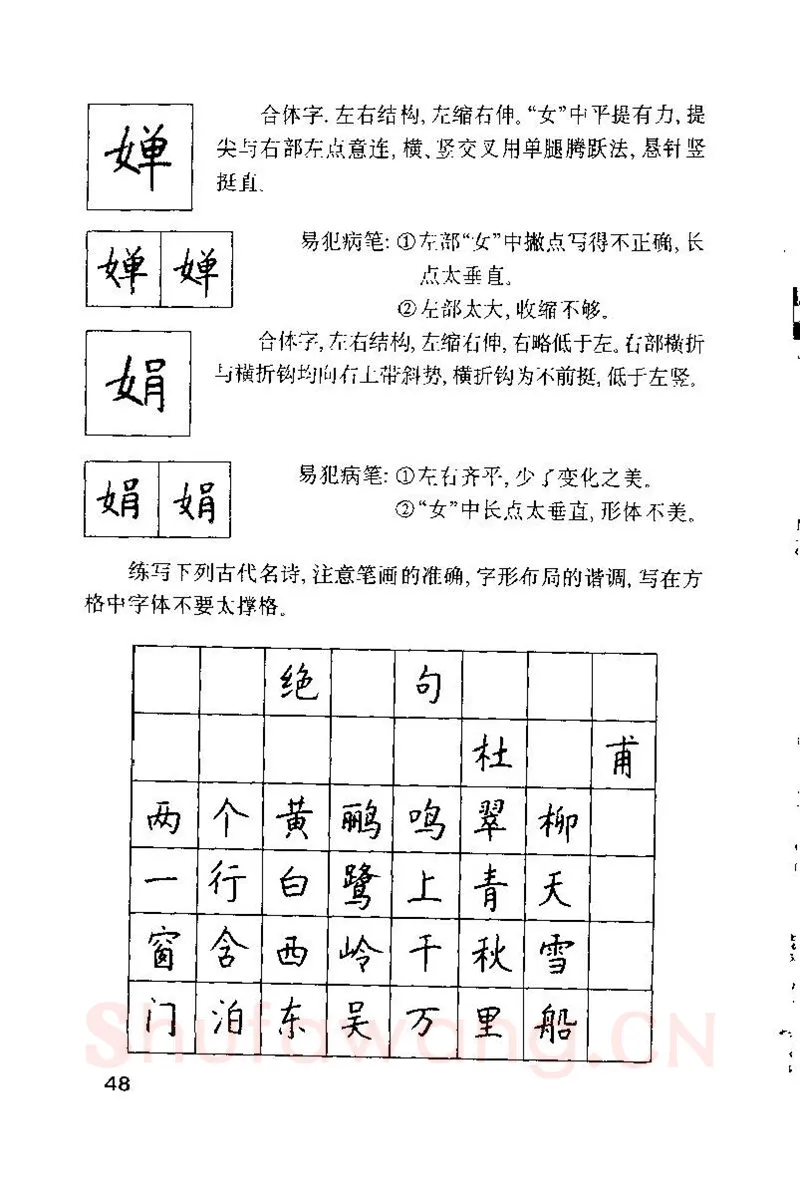 婵
合体字.左右结构,左缩右伸。“女”中平提有力,提
尖与右部左点意连,横、竖交叉用单腿腾跃法,悬针竖
挺直.
婵 婵
易犯病笔:①左部“女”中撇点写得不正确,长
点太垂直。
②左部太大,收缩不够。
娟
合体字,左右结构,左缩右伸,右略低于左。右部横折
与横折钩均向右上带斜势,横折钩为不前挺,低于左竖。
娟 娟
易犯病笔:①左右齐平,少了变化之美。
②“女”中长点太垂直,形体不美。
练写下列古代名诗,注意笔画的准确,字形布局的谐调,写在方
格中字体不要太撑格。
绝 句
杜 甫
两个黄鹂鸣翠柳
一行白鹭上青天
窗含西岭千秋雪
门泊东吴万里船
Shufawang.CN
48